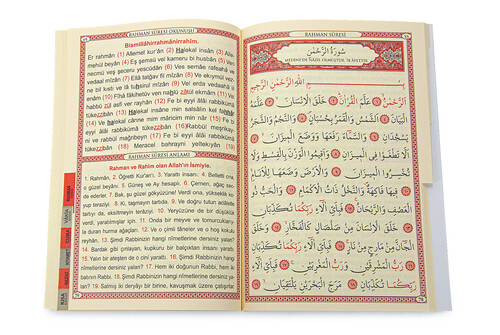 RAHMAN SÛRESİ OKUNUŞU
Bismillâhirrahmânirrahîm.
Er rahmân (1) Allemel kur'ân (2) Halekal insân (3) Alle
mehul beyân (4) Eş şemsü vel kameru bi husbân (5) Ven
necmü veş şeceru yescüdân (6) Ves semâe rafeahâ ve
vedaal mîzân (7) Ellâ tatğav fil mîzân (8) Ve ekıymül vez
ne bil kıstı ve lâ tuhsirul mîzân (9) Vel erda vedaahâ lil
enâm (10) Fîhâ fâkihetüv ven nahlü zâtül ekmâm (11) Vel
habbü zül asfi ver rayhân (12) Fe bi eyyi âlâi rabbikümâ
tükezzibân (13) Halekal insâne min salsâlin kel fehhâr
(14) Ve halekal cânne mim mâricim min nâr (15) Fe bi
eyyi âlâi rabbikümâ tükezzibân (16) Rabbül meşrikay
ni ve rabbül mağribeyn (17) Fe bi eyyi âlâi rabbikümâ
tükezzibân (18) Meracel bahrayni yeltekıyân (19)
RAHMAN SÛRESİ ANLAMI
Rahman ve Rahim olan Allah'ın İsmiyle.
1. Rahmân, 2. Öğretti Kur'an'ı, 3. Yarattı insanı. 4. Belletti ona,
o güzel beyânı; 5. Güneş ve Ay hesaplı. 6. Çemen, ağaç sec-
de ederler. 7. Bak, şu güzel gökyüzüne! Verdi ona, yükseklik ko-
yup teraziyi. 8. Ki, taşmayın tartıda. 9. Ve doğru tutun adâletle
tartıyı da, eksiltmeyin teraziyi. 10. Yeryüzüne de bir düşüklük
verdi, yaratılmışlar için. 11. Onda bir meyve ve tomurcuklarıy-
la duran hurma ağaçları. 12. Ve o çimli tâneler ve o hoş kokulu
reyhân. 13. Şimdi Rabbinizin hangi nîmetlerine dersiniz yalan?
14. Bardak gibi pınlayan, kupkuru bir balçıktan insanı yarattı.
15. Yalın bir ateşten de o cini yarattı. 16. Şimdi Rabbinizin hangi
nîmetlerine dersiniz yalan? 17. Hem iki doğunun Rabbi, hem iki
batının Rabbi. 18. Şimdi Rabbinizin hangi nîmetlerine dersiniz ya-
lan? 19. Salmış iki deryâyı bir birine, kavuşmak üzere çatışırlar.
RAHMAN SÛRESİ
سُورَةُ الرَّحْمٰنِ
بِسْمِ اللّٰهِ الرَّحْمٰنِ الرَّحِيمِ
اَلرَّحْمٰنُ ﴿١﴾ عَلَّمَ الْقُرْاٰنَ ﴿٢﴾ خَلَقَ الْاِنْسَانَ ﴿٣﴾ عَلَّمَهُ
الْبَيَانَ ﴿٤﴾ اَلشَّمْسُ وَالْقَمَرُ بِحُسْبَانٍ ﴿٥﴾ وَالنَّجْمُ وَالشَّجَرُ
يَسْجُدَانِ ﴿٦﴾ وَالسَّمَاءَ رَفَعَهَا وَوَضَعَ الْمِيزَانَ ﴿٧﴾
اَلَّا تَطْغَوْا فِى الْمِيزَانِ ﴿٨﴾ وَاَقِيمُوا الْوَزْنَ بِالْقِسْطِ وَلَا
تُخْسِرُوا الْمِيزَانَ ﴿٩﴾ وَالْاَرْضَ وَضَعَهَا لِلْاَنَامِ ﴿١٠﴾
فِيهَا فَاكِهَةٌ وَالنَّخْلُ ذَاتُ الْاَكْمَامِ ﴿١١﴾ وَالْحَبُّ ذُو
الْعَصْفِ وَالرَّيْحَانُ ﴿١٢﴾ فَبِاَىِّ اٰلَاءِ رَبِّكُمَا تُكَذِّبَانِ
﴿١٣﴾ خَلَقَ الْاِنْسَانَ مِنْ صَلْصَالٍ كَالْفَخَّارِ ﴿١٤﴾ وَخَلَقَ
الْجَانَّ مِنْ مَارِجٍ مِنْ نَارٍ ﴿١٥﴾ فَبِاَىِّ اٰلَاءِ رَبِّكُمَا تُكَذِّبَانِ
﴿١٦﴾ رَبُّ الْمَشْرِقَيْنِ وَرَبُّ الْمَغْرِبَيْنِ ﴿١٧﴾ فَبِاَىِّ اٰلَاءِ
رَبِّكُمَا تُكَذِّبَانِ ﴿١٨﴾ مَرَجَ الْبَحْرَيْنِ يَلْتَقِيَانِ ﴿١٩﴾